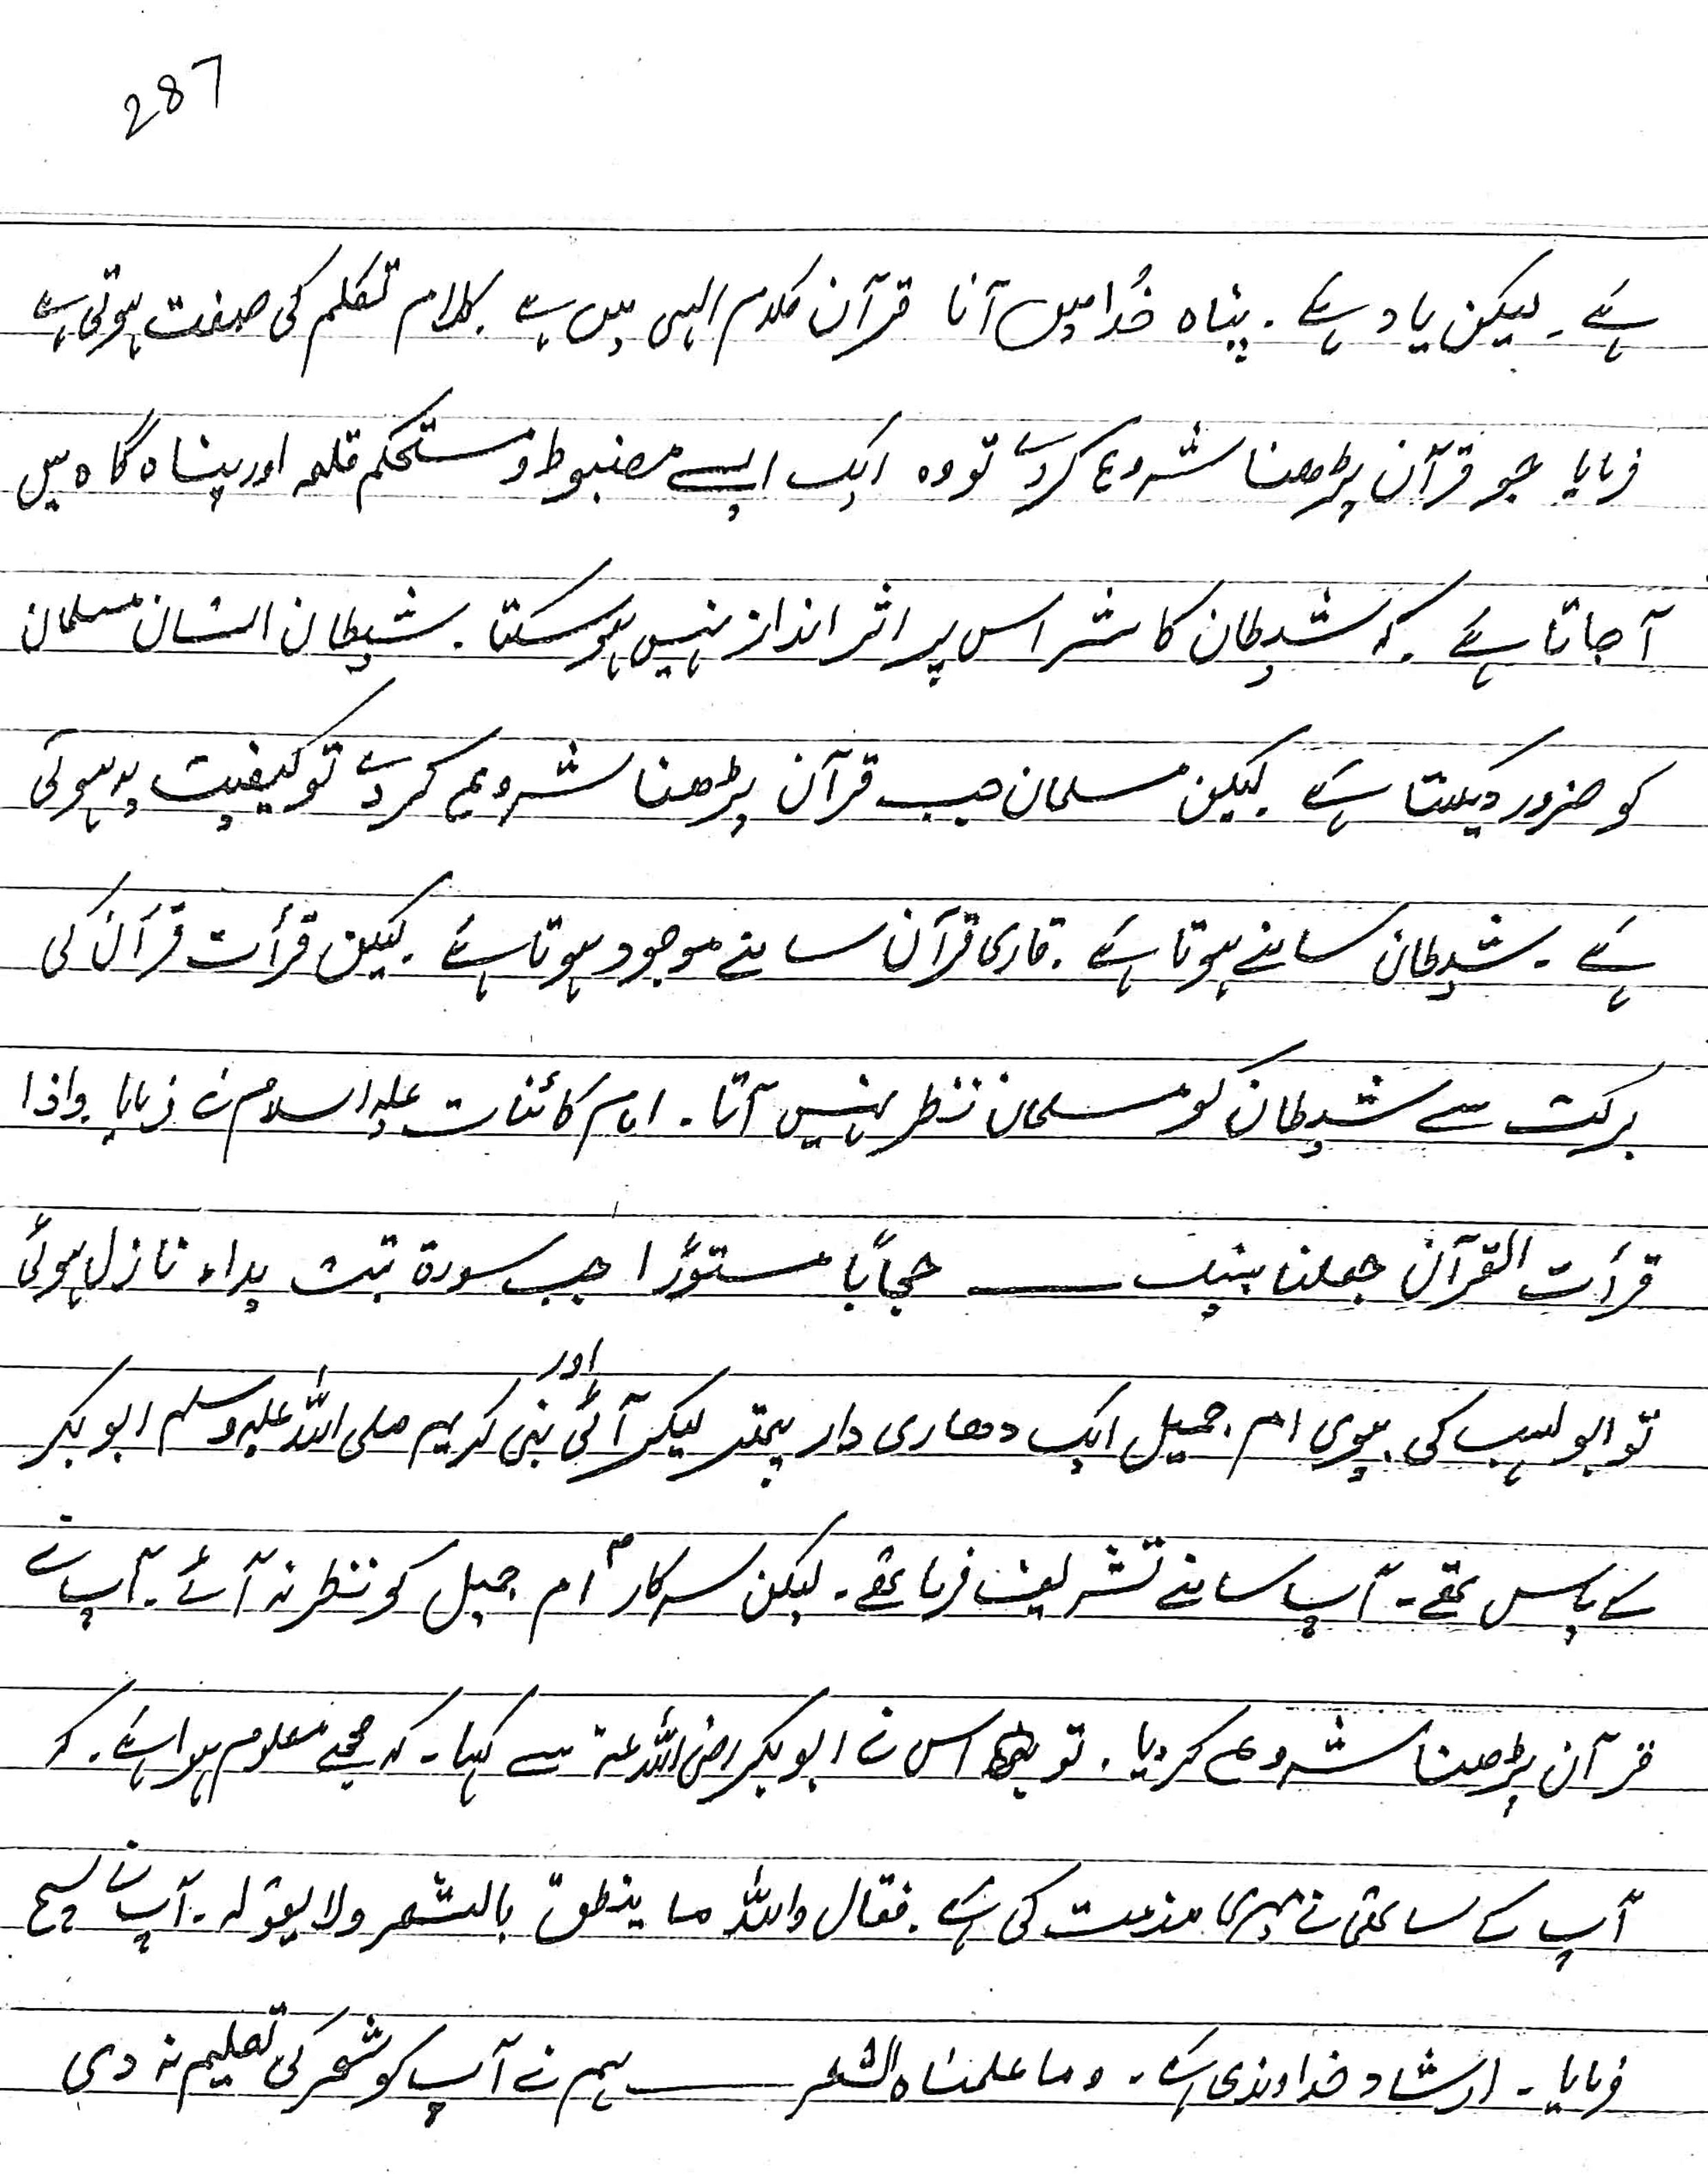 287
ہے۔ لیکن یاد ہے۔ پناہ خُدا میں آنا قرآن کلام الہی میں ہے۔ کلام تکلم کی صفت ہوتی ہے
فرمایا جو قرآن پڑھنا شروع کر دے تو وہ ایک ایسے مضبوط و مستحکم قلعہ اور پناہ گاہ میں
آ جاتا ہے۔ کہ شیطان کا شر اس پر اثر انداز نہیں ہو سکتا۔ شیطان انسان مسلمان
کو ضرور دیکھتا ہے۔ لیکن مسلمان جب قرآن پڑھنا شروع کر دے تو کیفیت یہ ہوتی
ہے۔ شیطان سامنے ہوتا ہے۔ قاری قرآن سامنے موجود ہوتا ہے۔ لیکن قرأت قرآن کی
برکت سے شیطان کو مسلمان نظر نہیں آتا۔ امام کائنات علیہ السلام نے فرمایا۔ واذا
قرأت القرآن جعلنا بینک ــــــ حجابًا مستورًا جب سورۃ تبت یداء نازل ہوئی
تو ابو لہب کی بیوی ام جمیل ایک دھاری دار پتھر لیکر آئی اور نبی کریم صلی اللہ علیہ وسلم ابو بکر
کے پاس تھے۔ آپ سامنے تشریف فرما تھے۔ لیکن سرکارؐ ام جمیل کو نظر نہ آئے۔ آپ نے
قرآن پڑھنا شروع کر دیا۔ تو اس نے ابو بکر رضی اللہ عنہ سے کہا۔ کہ مجھے معلوم ہوا ہے۔ کہ
آپ کے ساتھی نے میری مذمت کی ہے۔ فقال واللہ ما ینطق بالشعر ولا یقولہ۔ آپ نے سچ
فرمایا۔ ارشاد خداوندی ہے۔ وما علمناہ الشعر ــــــ ہم نے آپ کو شعر کی تعلیم نہ دی